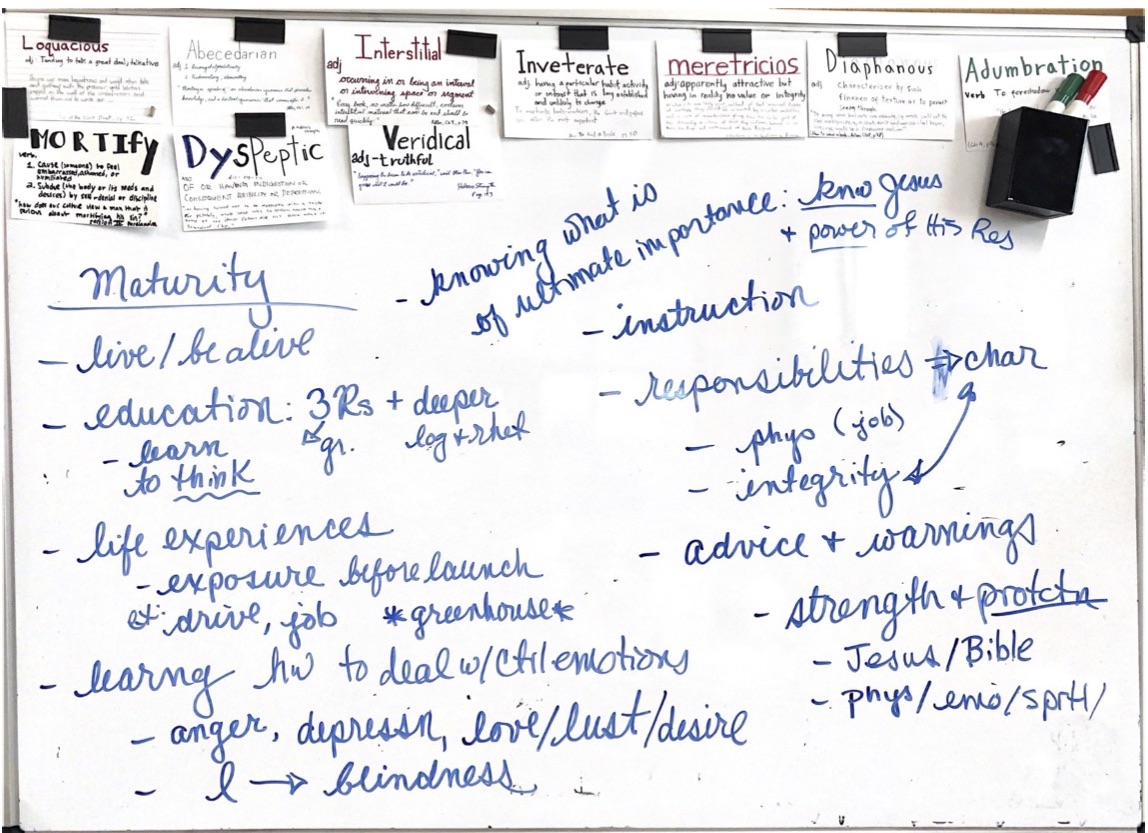 Loquacious
adj Tending to talk a great deal; talkative
Abecedarian
adj
Interstitial
adj
occurring in or being an interval
or intervening space or segment
Inveterate
adj having a particular habit, activity
or interest that is long established
and unlikely to change
meretricios
adj apparently attractive but
having in reality no value or integrity
Diaphanous
adj
Characterized by such
fineness of texture as to permit
seeing through
Adumbration
verb To foreshadow
MORTIFY
verb.
1. Cause (someone) to feel
embarrassed, ashamed, or
humiliated
2. Subdue (the body or its needs and
desires) by self denial or discipline
Dyspeptic
OF OR HAVING INDIGESTION OR
CONSEQUENT IRRITABILITY OR DEPRESSION
Veridical
adj - truthful
Maturity
- live/be alive
- education: 3Rs + deeper
gr. log + rhet
- learn
to think
- life experiences
- exposure before launch
ex: drive, job *greenhouse*
- learng hw to deal w/ctrl emotions
- anger, depressn, love/lust/desire
- l → blindness
- knowing what is
of ultimate importance: know Jesus
+ power of His Res
- instruction
- responsibilities ⇒ char
- phys (job)
- integrity
- advice + warnings
- strength + protctn
- Jesus/Bible
- phys/emo/sprtl/